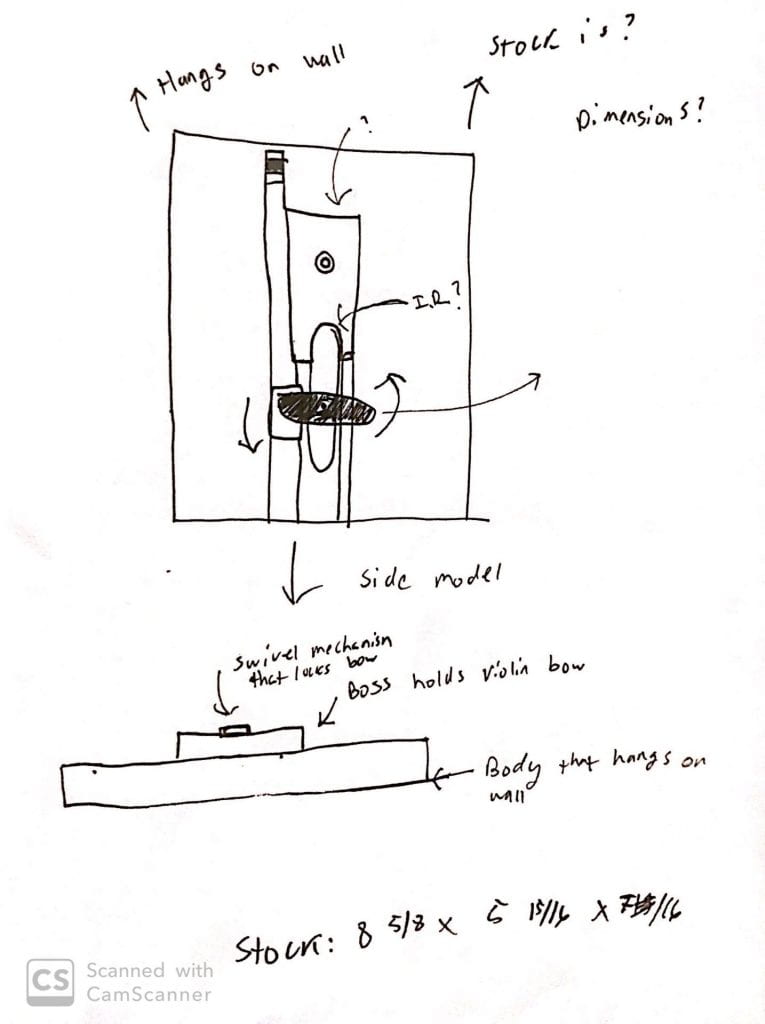 Stock is?
Hangs on wall
Dimensions?
?
I.R?
Side model
Swivel mechanism
that locks bow
Boss holds violin bow
Body that hangs on
wall
Stock: 8 5/8 x 5 15/16 x /16
CS Scanned with
CamScanner